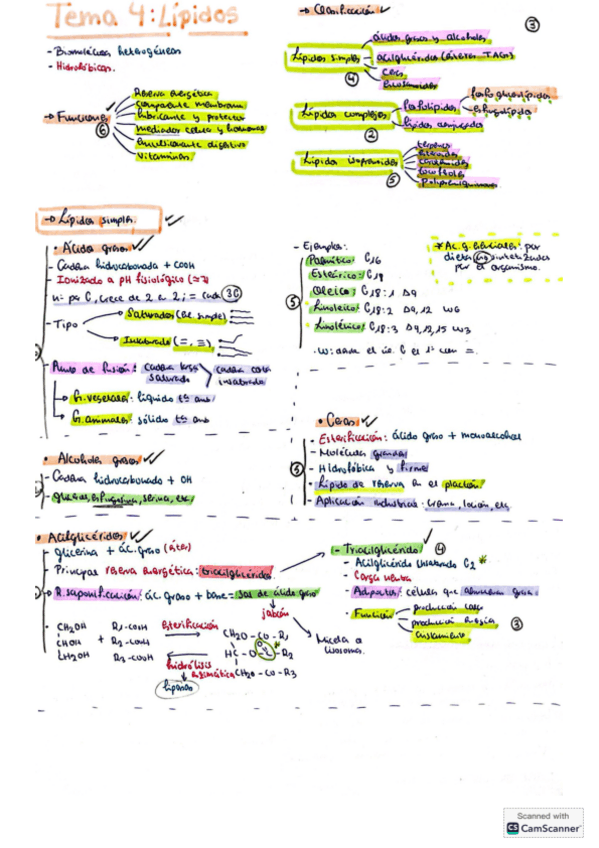 Tema 4: Lípidos
- Biomoléculas heterogéneas
- Hidrofóbicas.
→ Funciones
6
Reserva energética
componente membrana
lubricante y protector
mediador celular y hormonas
emulsionante digestivo
vitaminas
→ Clasificación
3
Lípidos simples
4
ácidos grasos y alcoholes
acilglicéridos (ésteres TAGs)
Ceras
Eicosanoides
Lípidos complejos
2
fosfolípidos
fosfoglicerolípidos
esfingolípidos
lípidos conjugados
Lípidos isoprenoides
5
terpenos
esteroides
carotenoides
tocoferoles
poliprenilquinonas
→ Lípidos simples.
• Ácidos grasos
- Cadena hidrocarbonada + COOH
- Ionizado a pH fisiológico (≈7)
- nº par C, crece de 2 en 2, = cada 3C
- Tipo
Saturados (enl. simple)
Insaturado (=, ≡)
- Punto de fusión: cadena larga saturada > cadena corta insaturada
G. vegetales: líquido tª amb
G. animales: sólido tª amb
- Ejemplos:
5
Palmítico: C16
Esteárico: C18
Oleico: C18:1 Δ9
Linoleico: C18:2 Δ9,12 ω6
Linolénico: C18:3 Δ9,12,15 ω3
* Ac. g. esenciales: por
dieta no sintetizados
por el organismo.
• Alcoholes grasos
- Cadena hidrocarbonado + OH
• Ceras
5
- Esterificación: ácido graso + monoalcohol
- Moléculas grandes
- Hidrofóbica y firme
- Lípido de reserva en el plancton
- Aplicación industrial: crema, loción, etc
• Acilglicéridos
- glicerina + ác. graso (éster)
- Principal reserva energética: triacilglicéridos
- R. saponificación: ác. graso + base = sal de ácido graso
jabón
Micela o
liposoma.
CH2OH R1-COOH
CHOH + R2-COOH
CH2OH R3-COOH
esterificación
hidrólisis
enzimática
lipasas
CH2O - CO - R1
HC - O - C - R2
O
CH2O - CO - R3
1- Triacilglicérido
4
- Acilglicérido insaturado C2 *
- Carga neutra
- Adipocitos: células que almacenan grasas
- Función
3
producción calor
producción energía
aislamiento
Scanned with
CS CamScanner